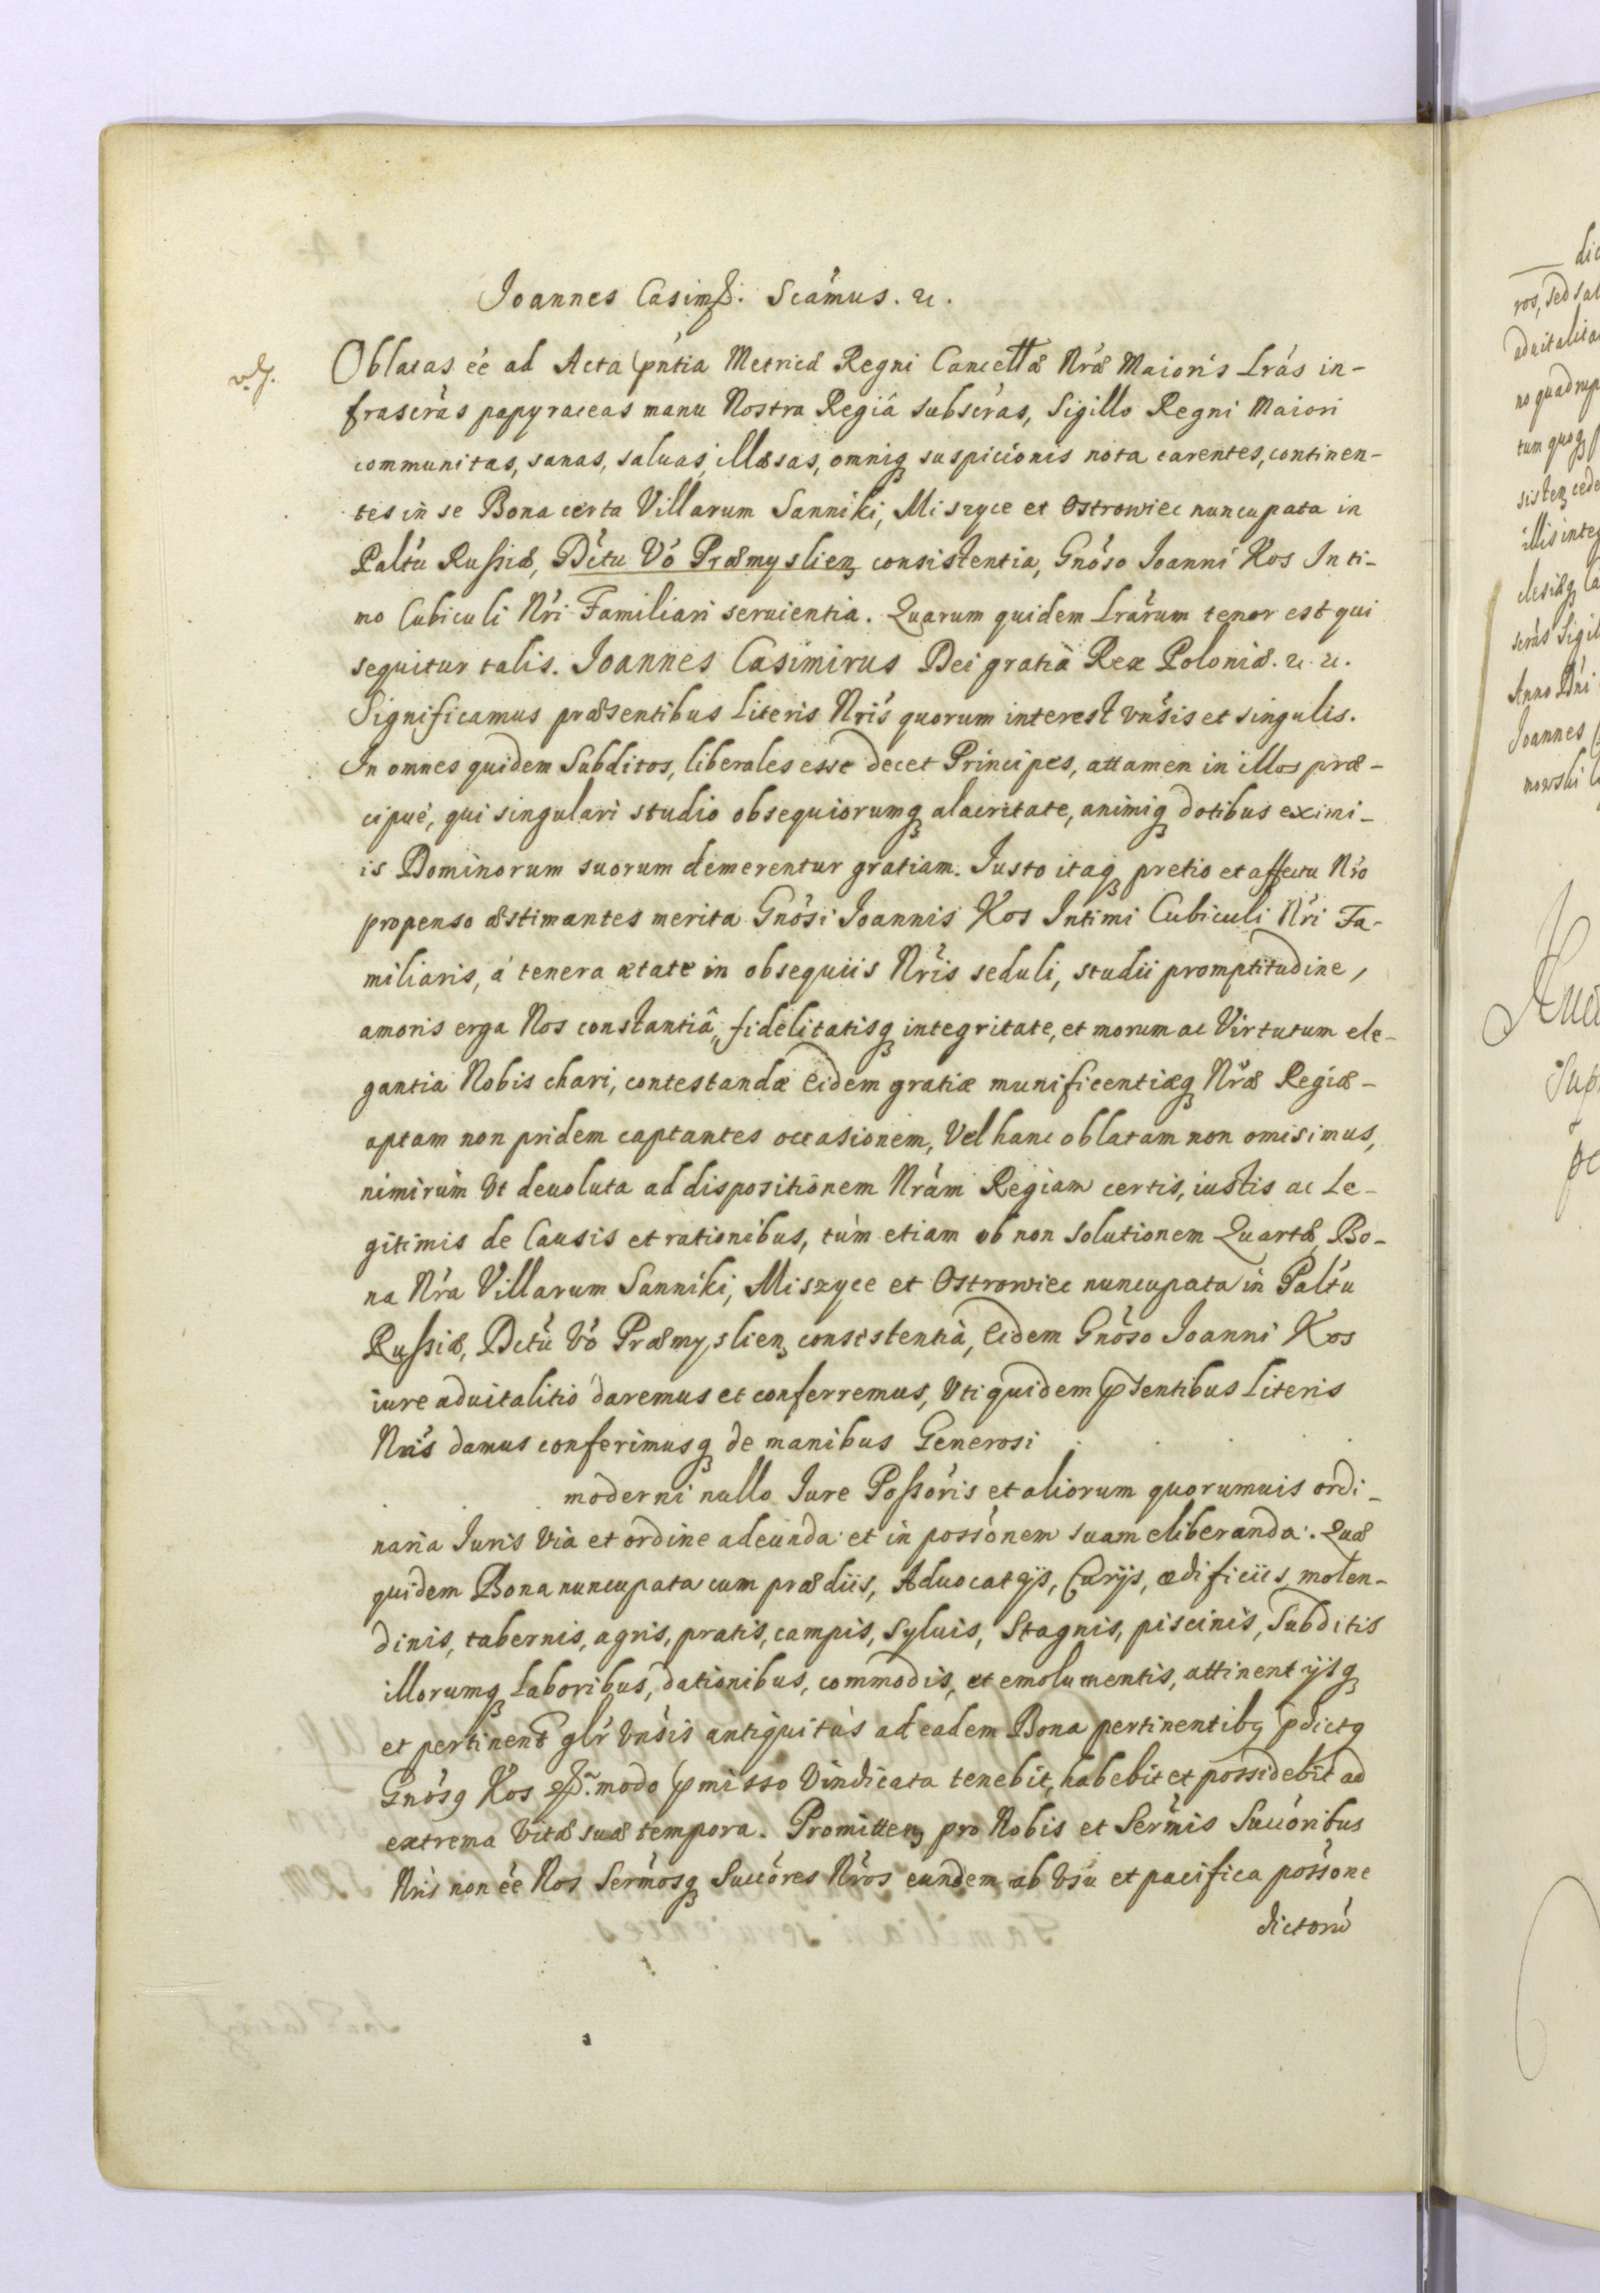 Joannes Casimirꝰ. Scámus. ꝛc.
Oblatas éé ad Acta pńtia Metricæ Regni Cancellæ Nræ Maioris Lrás in-
frascras papyraceas manu Nostra Regiâ subscras, Sigillo Regni Maiori
communitas, sanas, saluas, illæsas, omniq suspicionis nota carentes, continen-
tes in se Bona certa Villarum Sanniki, Miszyce et Ostrowiec nuncupata in
Paltu Russiæ, Dctu Vó Præmyslien consistentia, Gnóso Joanni Kos Inti-
mo Cubiculi Nri Familiari seruientia. Quarum quidem Lrárum tenor est qui
sequitur talis. Joannes Casimirus Dei gratiâ Rex Poloniæ. ꝛc. ꝛc.
Significamus præsentibus Literis Nris quorum interest vnsis et singulis.
In omnes quidem Subditos, liberales esse decet Principes, attamen in illos præ-
cipué, qui singulari studio obsequiorumq alacritate, animiq dotibus eximi-
is Dominorum suorum demerentur gratiam. Iusto itaq pretio et affectu Nro
propenso æstimantes merita Gnósi Joannis Kos Intimi Cubiculi Nri Fa-
miliaris, á tenera ætate in obsequiis Nris seduli, studii promptitudine,
amoris erga Nos constantiâ, fidelitatisq integritate, et morum ac Virtutum ele-
gantia Nobis chari, contestandæ Eidem gratiæ munificentiæq Nræ Regiæ-
aptam non pridem captantes occasionem, Vel hanc oblatam non omisimus,
nimirum Vt deuoluta ad dispositionem Nrám Regiam certis, iustis ac Le-
gitimis de Causis et rationibus, tùm etiam ob non solutionem Quartæ, Bo-
na Nra Villarum Sanniki, Miszyce et Ostrowiec nuncupata in Paltu
Russiæ, Dctu Vó Præmyslien consistentia, Eidem Gnóso Joanni Kos
iure aduitalitio daremus et conferremus, Vti quidem psentibus Literis
Nris damus conferimusq de manibus Generosi . . . .
. . . moderni nullo Jure Possóris et aliorum quorumuis ordi-
naria Juris Via et ordine adeunda et in possónem suam eliberanda. Quæ
quidem Bona nuncupata cum prædiis, Aduocatijs, Curijs, ædificiis, molen-
dinis, tabernis, agris, pratis, campis, syluis, Stagnis, piscinis, Subditis
illorumq Laboribus, dationibus, commodis, et emolumentis, attinentijsq
et pertinent glr vnsis antiquitùs ad eadem Bona pertinentibꝰ pdictꝰ
Gnósꝰ Kos modo pmisso Vindicata tenebit, habebit et possidebit ad
extrema Vitæ suæ tempora. Promitten pro Nobis et Sermis Succóribus
Nris non éé Nos Sermosq Succóres Nros eundem ab Vsu et pacifica possóne
dictoru